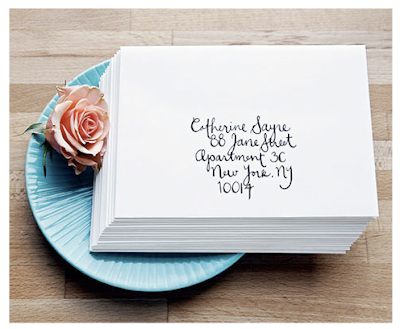 Catherine Sayne
68 Jane Street
Apartment 3C
New York, NY
10014